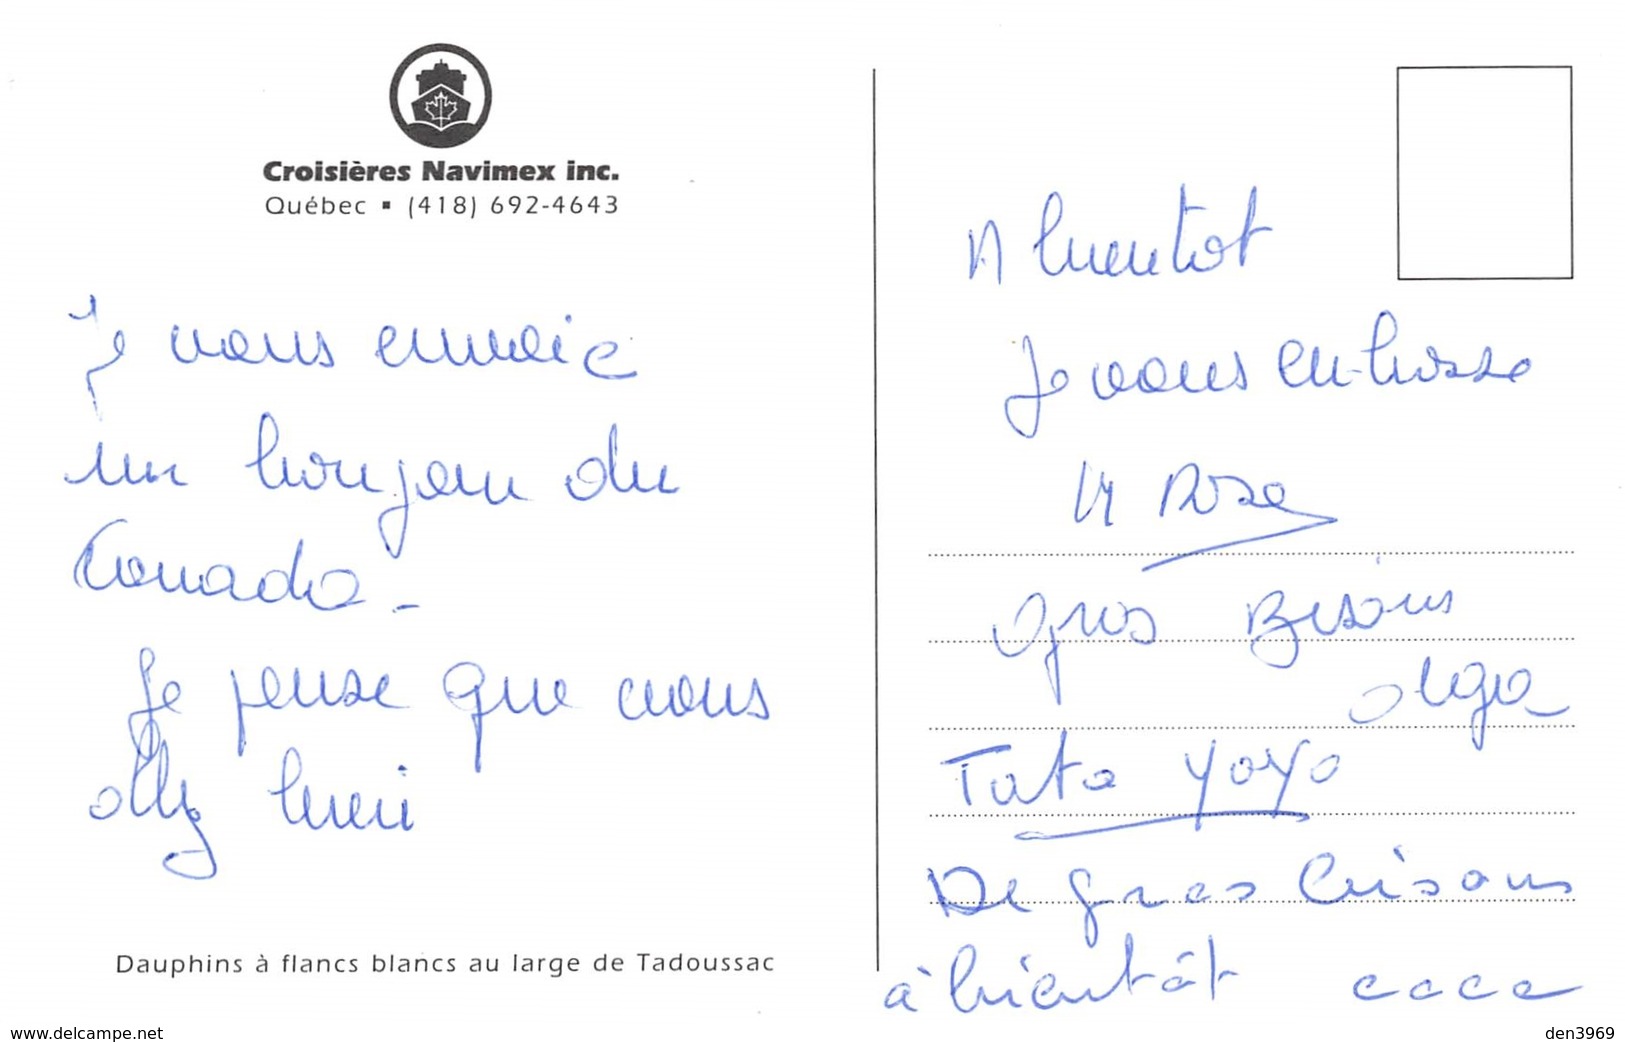 Croisières Navimex inc.
Québec ▪ (418) 692-4643
Je vous envoie
un bonjour du
Canada -
Je pense que vous
allez bien
Dauphins à flancs blancs au large de Tadoussac
A bientot
Je vous embrasse
M Rose
Gros Bisous
Olga
Tata yoyo
De gros bisous
à bientôt
www.delcampe.net
den3969